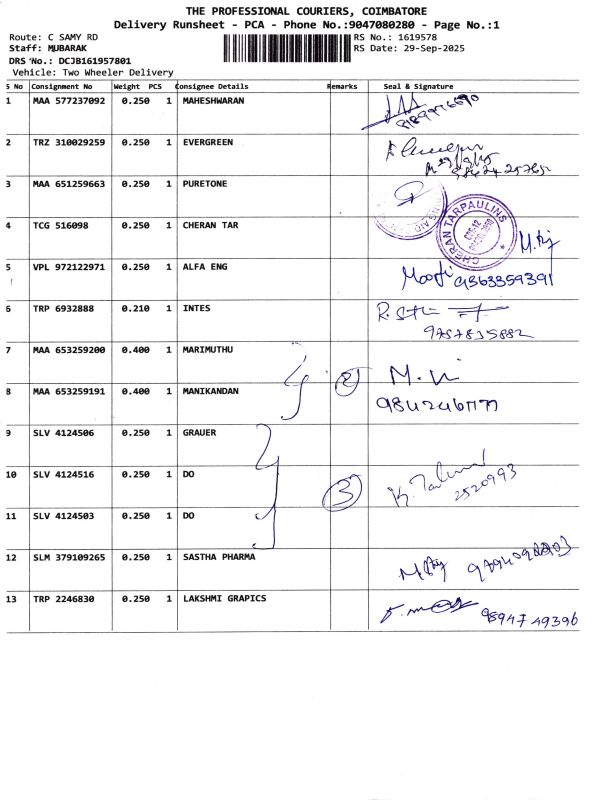 THE PROFESSIONAL COURIERS, COIMBATORE
Delivery Runsheet - PCA - Phone No.:9047080280 - Page No.:1
Route: C SAMY RD RS No.: 1619578
Staff: MUBARAK RS Date: 29-Sep-2025
DRS No.: DCJB161957801
Vehicle: Two Wheeler Delivery
S No Consignment No Weight PCS Consignee Details Remarks Seal & Signature
1 MAA 577237092 0.250 1 MAHESHWARAN
2 TRZ 310029259 0.250 1 EVERGREEN
3 MAA 651259663 0.250 1 PURETONE
4 TCG 516098 0.250 1 CHERAN TAR
CHERAN TARPAULINS
5 VPL 972122971 0.250 1 ALFA ENG 9363359391
6 TRP 6932888 0.210 1 INTES
9787835882
7 MAA 653259200 0.400 1 MARIMUTHU 2
8 MAA 653259191 0.400 1 MANIKANDAN
9 SLV 4124506 0.250 1 GRAUER
10 SLV 4124516 0.250 1 DO 3 2520993
11 SLV 4124503 0.250 1 DO
12 SLM 379109265 0.250 1 SASTHA PHARMA
13 TRP 2246830 0.250 1 LAKSHMI GRAPICS 98947 49396